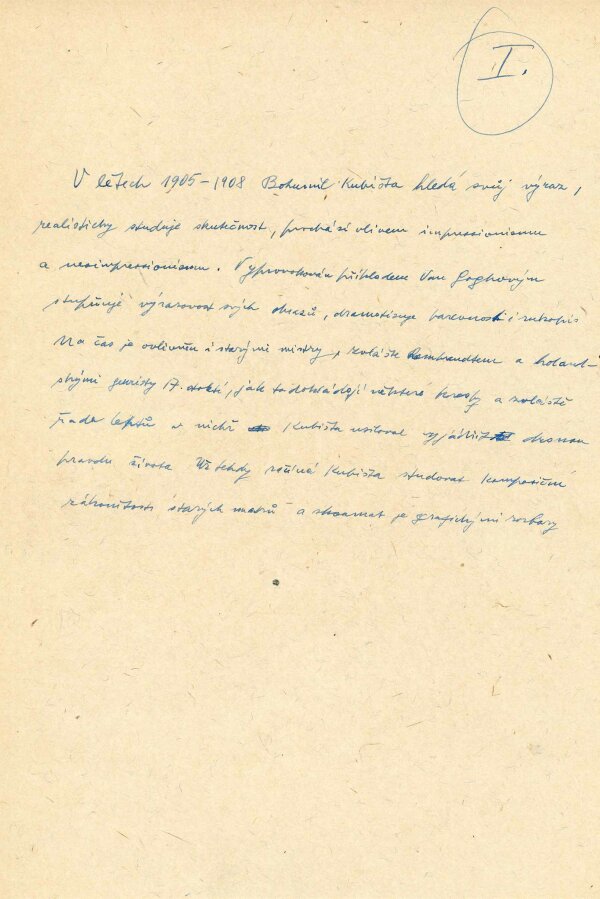 I.
V létech 1905–1908 Bohumil Kubišta hledá svůj výraz,
realisticky studuje skutečnost, prochází vlivem impressionismu
a neoimpressionismu. Vyprovokován příkladem Van Goghovým
stupňuje výrazovost svých obrazů, dramatisuje barevnost i rukopis
Na čas je ovlivněn i starými mistry, zvláště Rembrandtem a holand-
skými genristy 17. století, jak to dokládají některé kresby a zvláště
řada leptů v nichž Kubišta usiloval vyjádřit drsnou
pravdu života Už tehdy začíná Kubišta studovat kompoziční
zákonitosti starých mistrů a zkoumat je grafickými rozbory